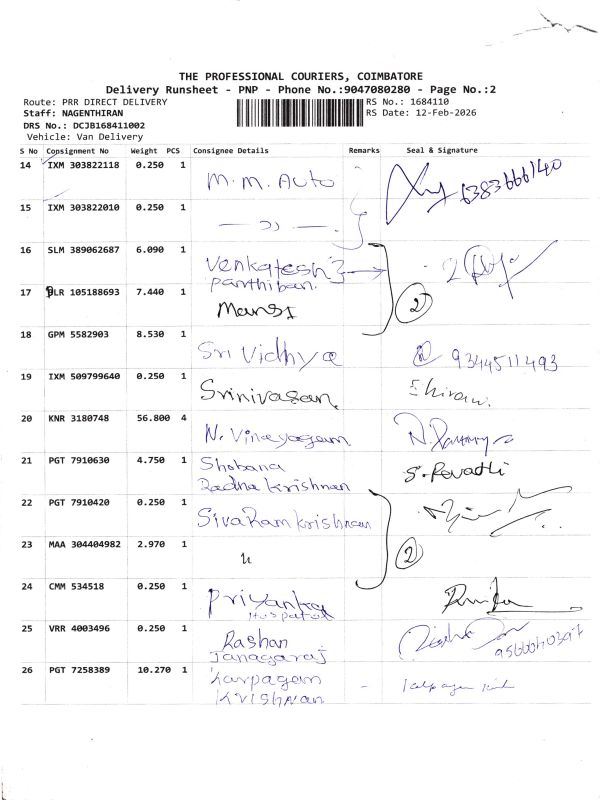 THE PROFESSIONAL COURIERS, COIMBATORE
Delivery Runsheet - PNP - Phone No.:9047080280 - Page No.:2
Route: PRR DIRECT DELIVERY
RS No.: 1684110
Staff: NAGENTHIRAN
RS Date: 12-Feb-2026
DRS No.: DCJB168411002
Vehicle: Van Delivery
S No Consignment No Weight PCS Consignee Details Remarks Seal & Signature
14 IXM 303822118 0.250 1 M.M. Auto 6383666140
15 IXM 303822010 0.250 1 — 〃 —
16 SLM 389062687 6.090 1 Venkatesh 2
Panthiban.
17 PLR 105188693 7.440 1 Mansi 2
18 GPM 5582903 8.530 1 Sri Vidhya 9344511493
19 IXM 509799640 0.250 1 Srinivasan.
20 KNR 3180748 56.800 4 N. Vinayagam
21 PGT 7910630 4.750 1 Shobana S. Revathi
Radha Krishnan
22 PGT 7910420 0.250 1 Siva Ram krishnan
23 MAA 304404982 2.970 1 〃 2
24 CMM 534518 0.250 1 Priyanka
Hospital
25 VRR 4003496 0.250 1 Rashan
Janagaraj
26 PGT 7258389 10.270 1 karpagam -
Krishnan